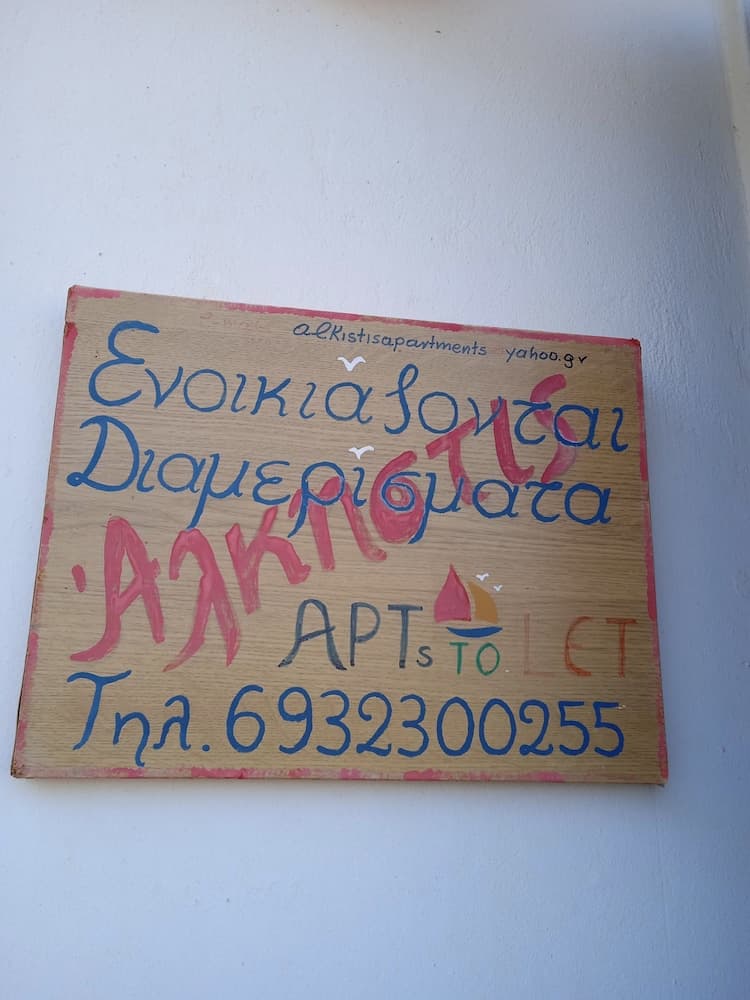 alkistisapartments yahoo.gr
Ενοικιαζονται
Διαμερίσματα
'Αλκηστις
APTs TO LET
Τηλ. 6932300255